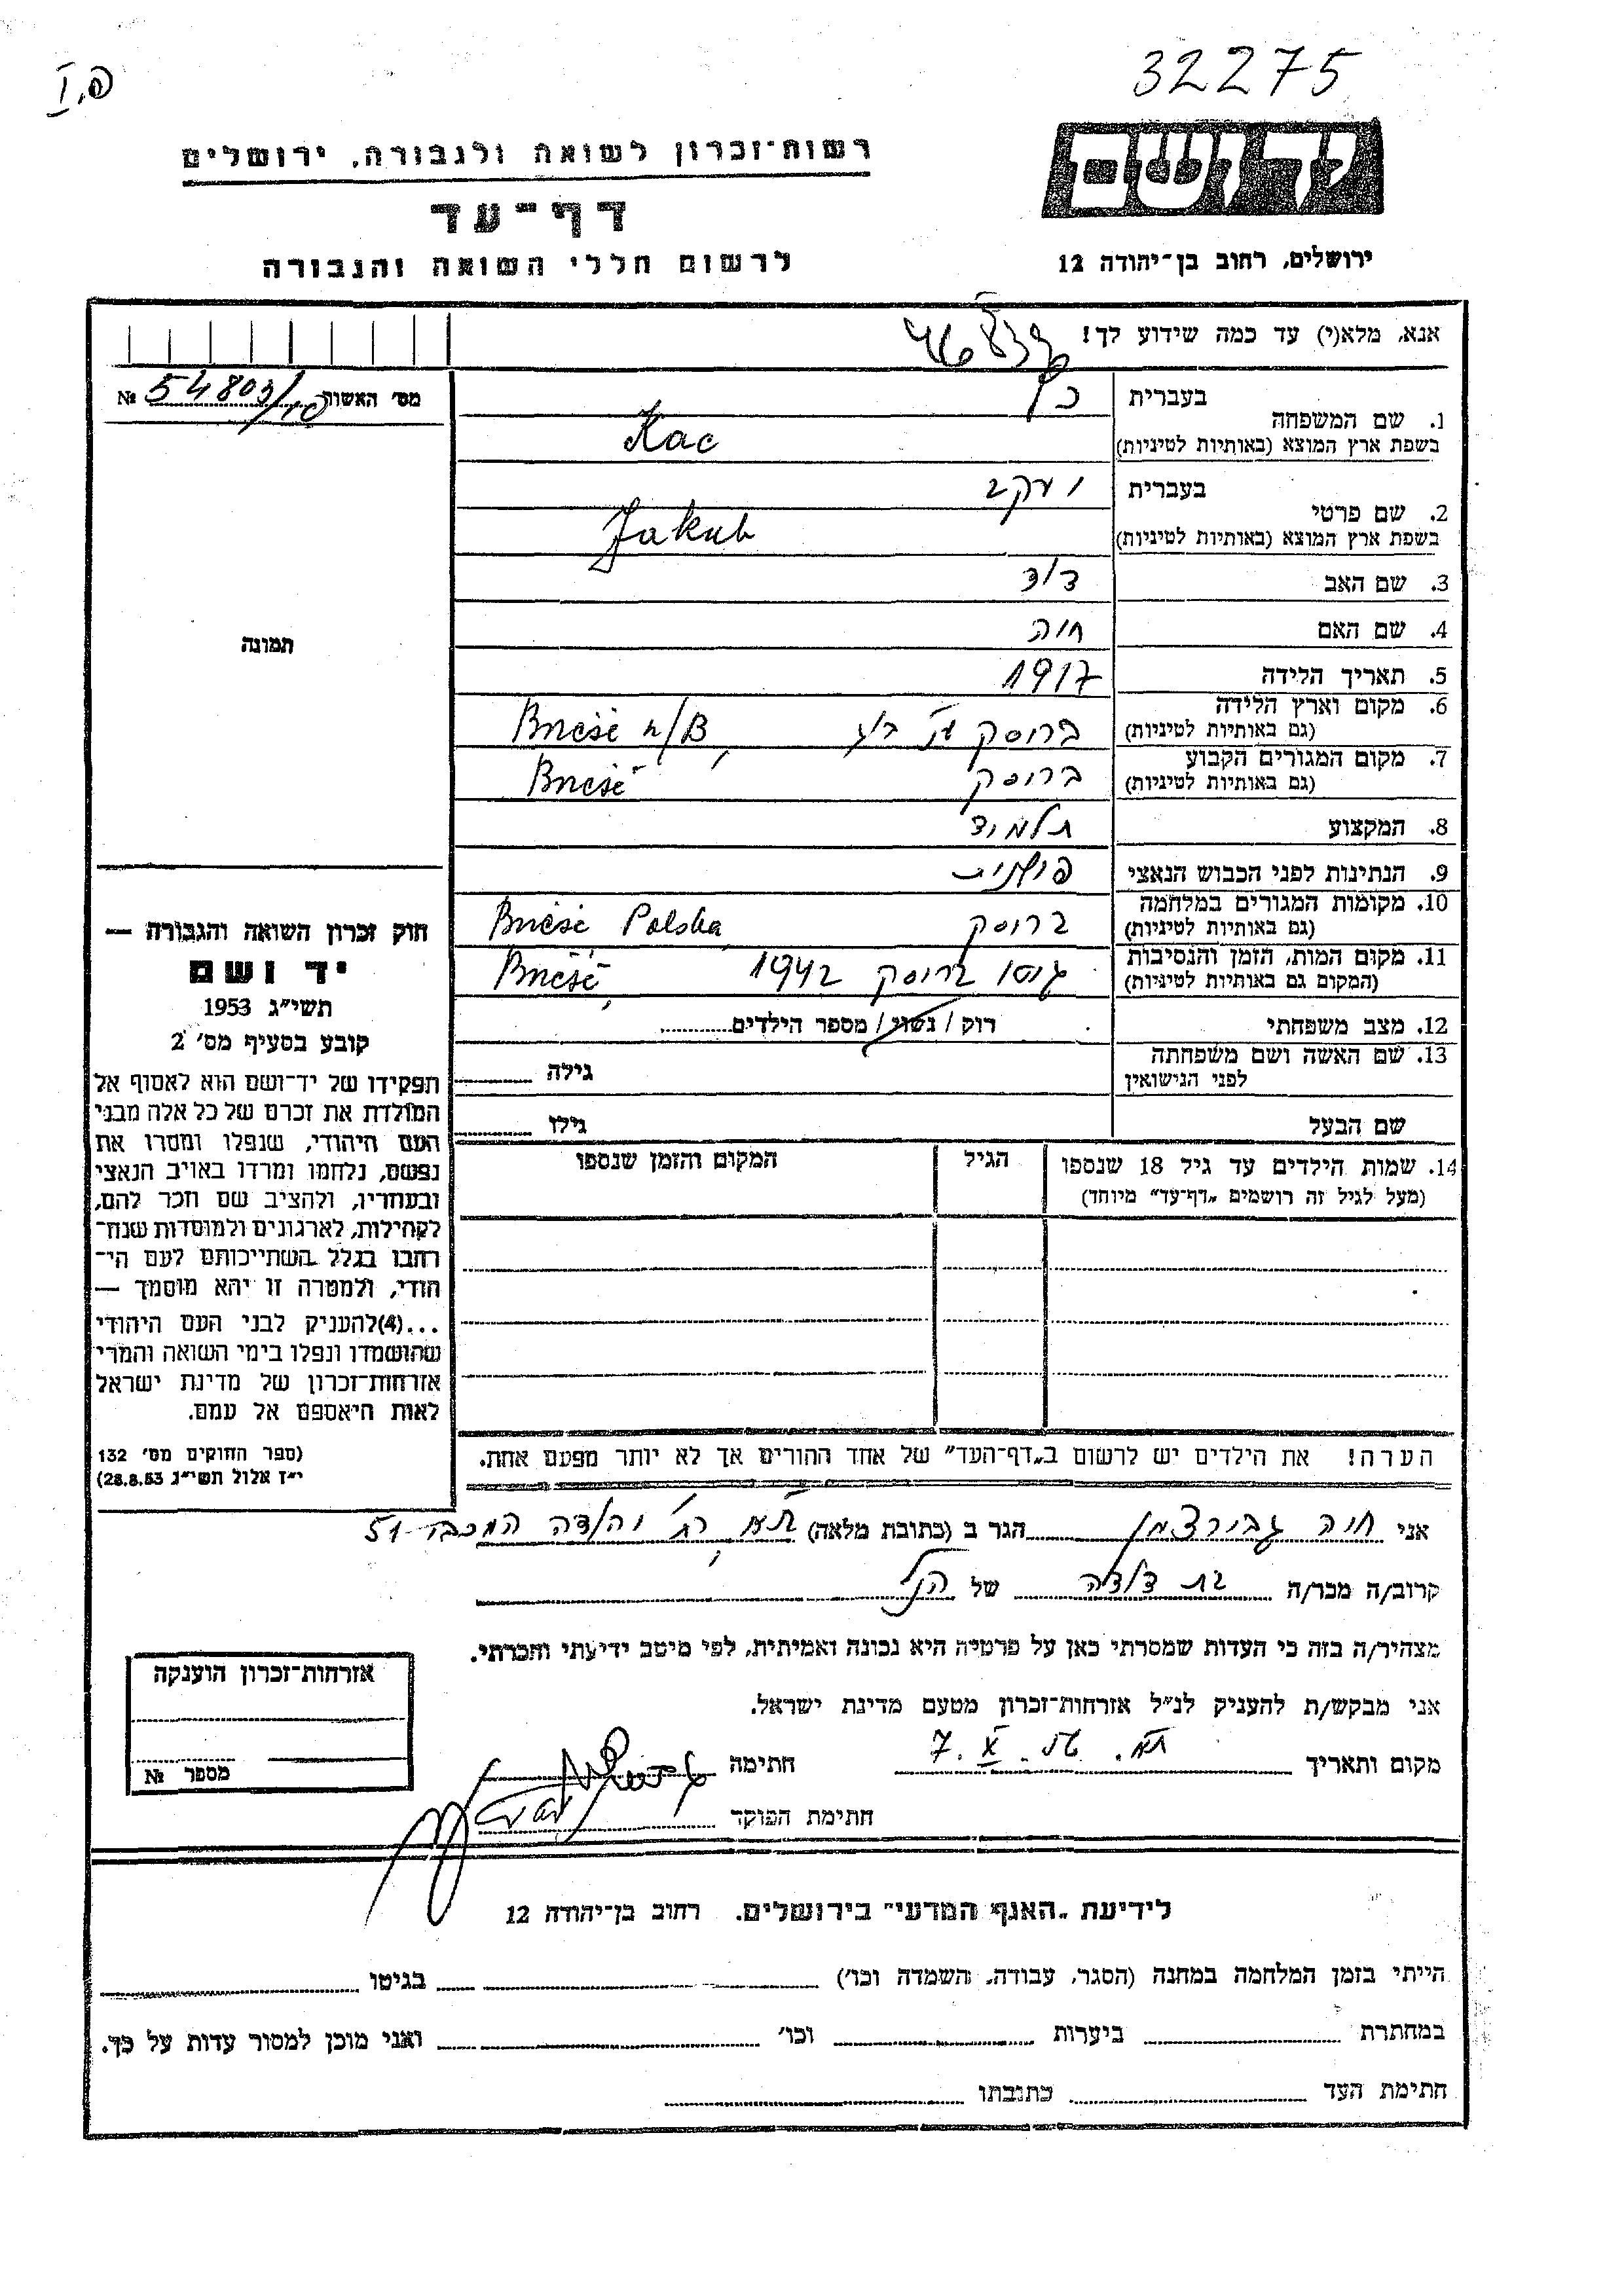 32275
רשות־זכרון לשואה ולגבורה, ירושלים
יד ושם
דף־עד
לרשום חללי השואה והגבורה
ירושלים, רחוב בן־יהודה 12
אנא, מלא(י) עד כמה שידוע לך!
מס׳ האשות № 54803/10
1. שם המשפחה
בעברית כץ
בשפת ארץ המוצא (באותיות לטיניות) Kac
2. שם פרטי
בעברית יעקב
בשפת ארץ המוצא (באותיות לטיניות) Jakub
3. שם האב דוד
4. שם האם חוה
5. תאריך הלידה 1917
6. מקום וארץ הלידה
(גם באותיות לטיניות) בריסק Brześć n/B
7. מקום המגורים הקבוע
(גם באותיות לטיניות) בריסק Brześć
8. המקצוע תלמיד
9. הנתינות לפני הכבוש הנאצי פולנית
10. מקומות המגורים במלחמה
(גם באותיות לטיניות) בריסק Brześć Polska
11. מקום המות, הזמן והנסיבות
(המקום גם באותיות לטיניות) גטו בריסק 1942 Brześć
12. מצב משפחתי רוק / נשוי / מספר הילדים
13. שם האשה ושם משפחתה
לפני הנישואין
גילה
שם הבעל גילו
14. שמות הילדים עד גיל 18 שנספו הגיל המקום והזמן שנספו
(מעל לגיל זה רושמים „דף־עד״ מיוחד)
הערה! את הילדים יש לרשום ב„דף־העד״ של אחד ההורים אך לא יותר מפעם אחת.
תמונה
חוק זכרון השואה והגבורה —
יד ושם
תשי״ג 1953
קובע בסעיף מס׳ 2
תפקידו של יד־ושם הוא לאסוף אל
המולדת את זכרם של כל אלה מבני
העם היהודי, שנפלו ומסרו את
נפשם, נלחמו ומרדו באויב הנאצי
ובעוזריו, ולהציב שם וזכר להם,
לקהילות, לארגונים ולמוסדות שנח־
רבו בגלל השתייכותם לעם הי־
הודי, ולמטרה זו יהא מוסמך —
...(4)להעניק לבני העם היהודי
שהושמדו ונפלו בימי השואה והמרי
אזרחות־זכרון של מדינת ישראל
לאות היאספם אל עמם.
(ספר החוקים מס׳ 132
י״ז אלול תשי״ג 28.8.53)
אני חוה הגר ב (כתובת מלאה) ת״א רח׳ יהודה המכבי 51
קרוב/ה מכר/ה בת דודה של הנ״ל
מצהיר/ה בזה כי העדות שמסרתי כאן על פרטיה היא נכונה ואמיתית, לפי מיטב ידיעתי והכרתי.
אני מבקש/ת להעניק לנ״ל אזרחות־זכרון מטעם מדינת ישראל.
מקום ותאריך ת״א. 56. X. 7 חתימה
חתימת הפוקד
אזרחות־זכרון הוענקה
מספר №
לידיעת „האגף המדעי״ בירושלים. רחוב בן־יהודה 12
הייתי בזמן המלחמה במחנה (הסגר, עבודה, השמדה וכו׳) בגיטו
במחתרת ביערות וכו׳ ואני מוכן למסור עדות על כך.
חתימת העד כתובתו